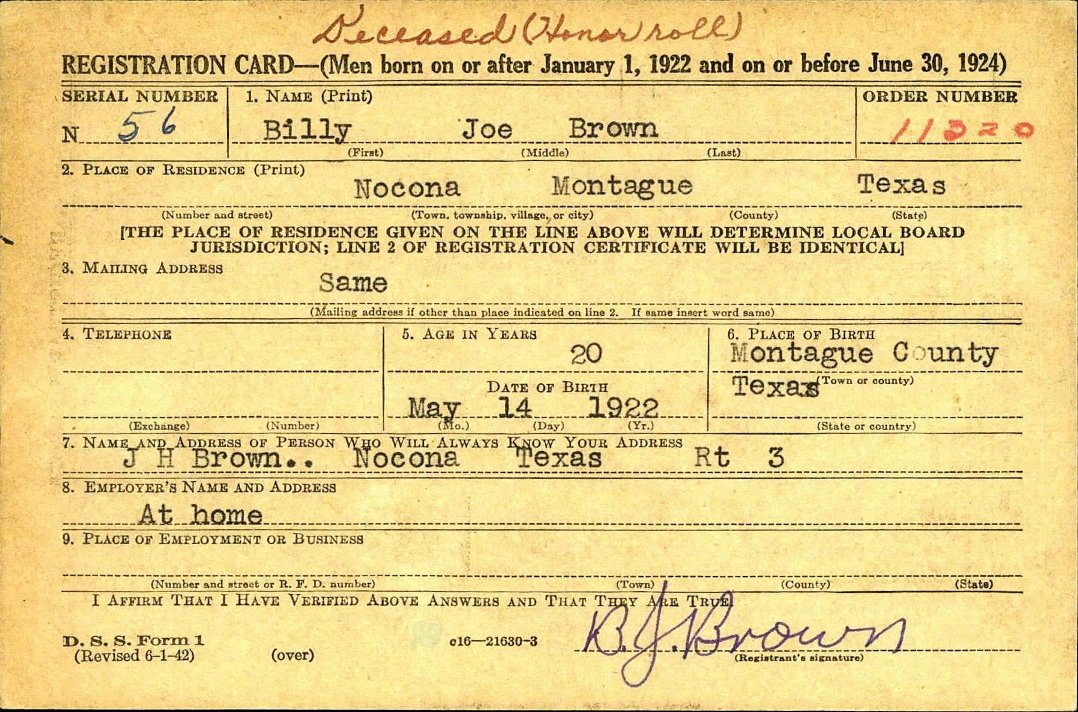 Deceased (Honor roll)
REGISTRATION CARD—(Men born on or after January 1, 1922 and on or before June 30, 1924)
SERIAL NUMBER 1. NAME (Print) ORDER NUMBER
N 56 Billy Joe Brown 11320
(First) (Middle) (Last)
2. PLACE OF RESIDENCE (Print)
Nocona Montague Texas
(Number and street) (Town, township, village, or city) (County) (State)
[THE PLACE OF RESIDENCE GIVEN ON THE LINE ABOVE WILL DETERMINE LOCAL BOARD
JURISDICTION; LINE 2 OF REGISTRATION CERTIFICATE WILL BE IDENTICAL]
3. MAILING ADDRESS
Same
(Mailing address if other than place indicated on line 2. If same insert word same)
4. TELEPHONE 5. AGE IN YEARS 6. PLACE OF BIRTH
20 Montague County
DATE OF BIRTH Texas (Town or county)
May 14 1922
(Exchange) (Number) (Mo.) (Day) (Yr.) (State or country)
7. NAME AND ADDRESS OF PERSON WHO WILL ALWAYS KNOW YOUR ADDRESS
J H Brown.. Nocona Texas Rt 3
8. EMPLOYER'S NAME AND ADDRESS
At home
9. PLACE OF EMPLOYMENT OR BUSINESS
(Number and street or R. F. D. number) (Town) (County) (State)
I AFFIRM THAT I HAVE VERIFIED ABOVE ANSWERS AND THAT THEY ARE TRUE
D. S. S. Form 1 c16—21630-3 B.J. Brown
(Revised 6-1-42) (over) (Registrant's signature)